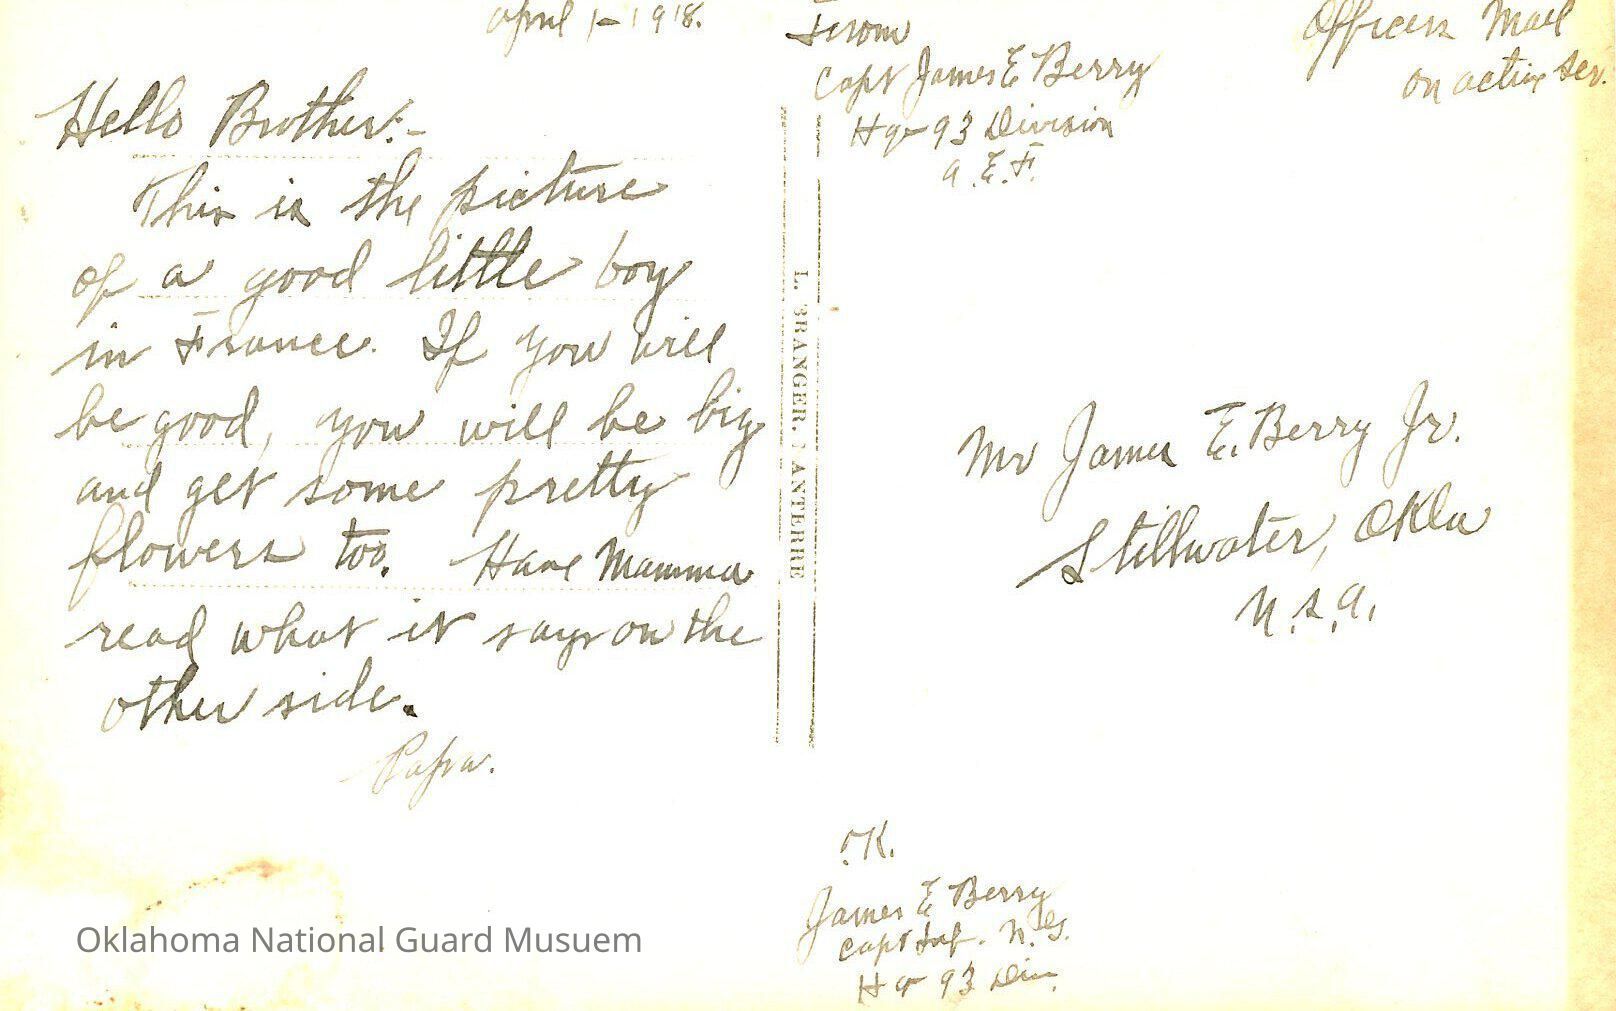 April 1 - 1918.
Hello Brother:-
This is the picture
of a good little boy
in France. If you will
be good, you will be big
and get some pretty
flowers too. Have Mamma
read what it says on the
other side.
Papa.
From
Capt James E Berry
Hq 93 Division
A.E.F.
Officers Mail
on active ser.
L. BRANGER, NANTERRE
Mr James E. Berry Jr.
Stillwater, Okla
U.S.A.
O.K.
James E Berry
Capt Inf. N.G.
Hq 93 Div.
Oklahoma National Guard Musuem